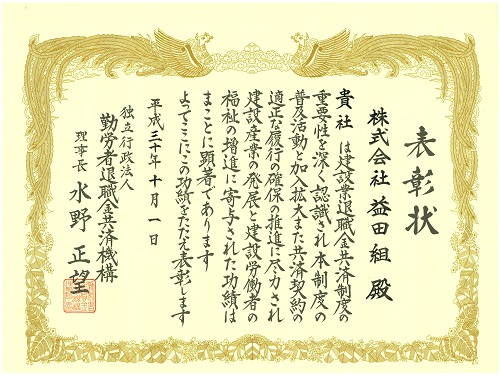 表彰状
株式会社 益田組 殿
貴社は建設業退職金共済制度の
重要性を深く認識され本制度の
普及活動と加入拡大また共済契約の
適正な履行の確保の推進に尽力され
建設産業の発展と建設労働者の
福祉の増進に寄与された功績は
まことに顕著であります
よってここにこの功績をたたえ表彰します
平成三十年十月一日
独立行政法人
勤労者退職金共済機構
理事長 水野正望